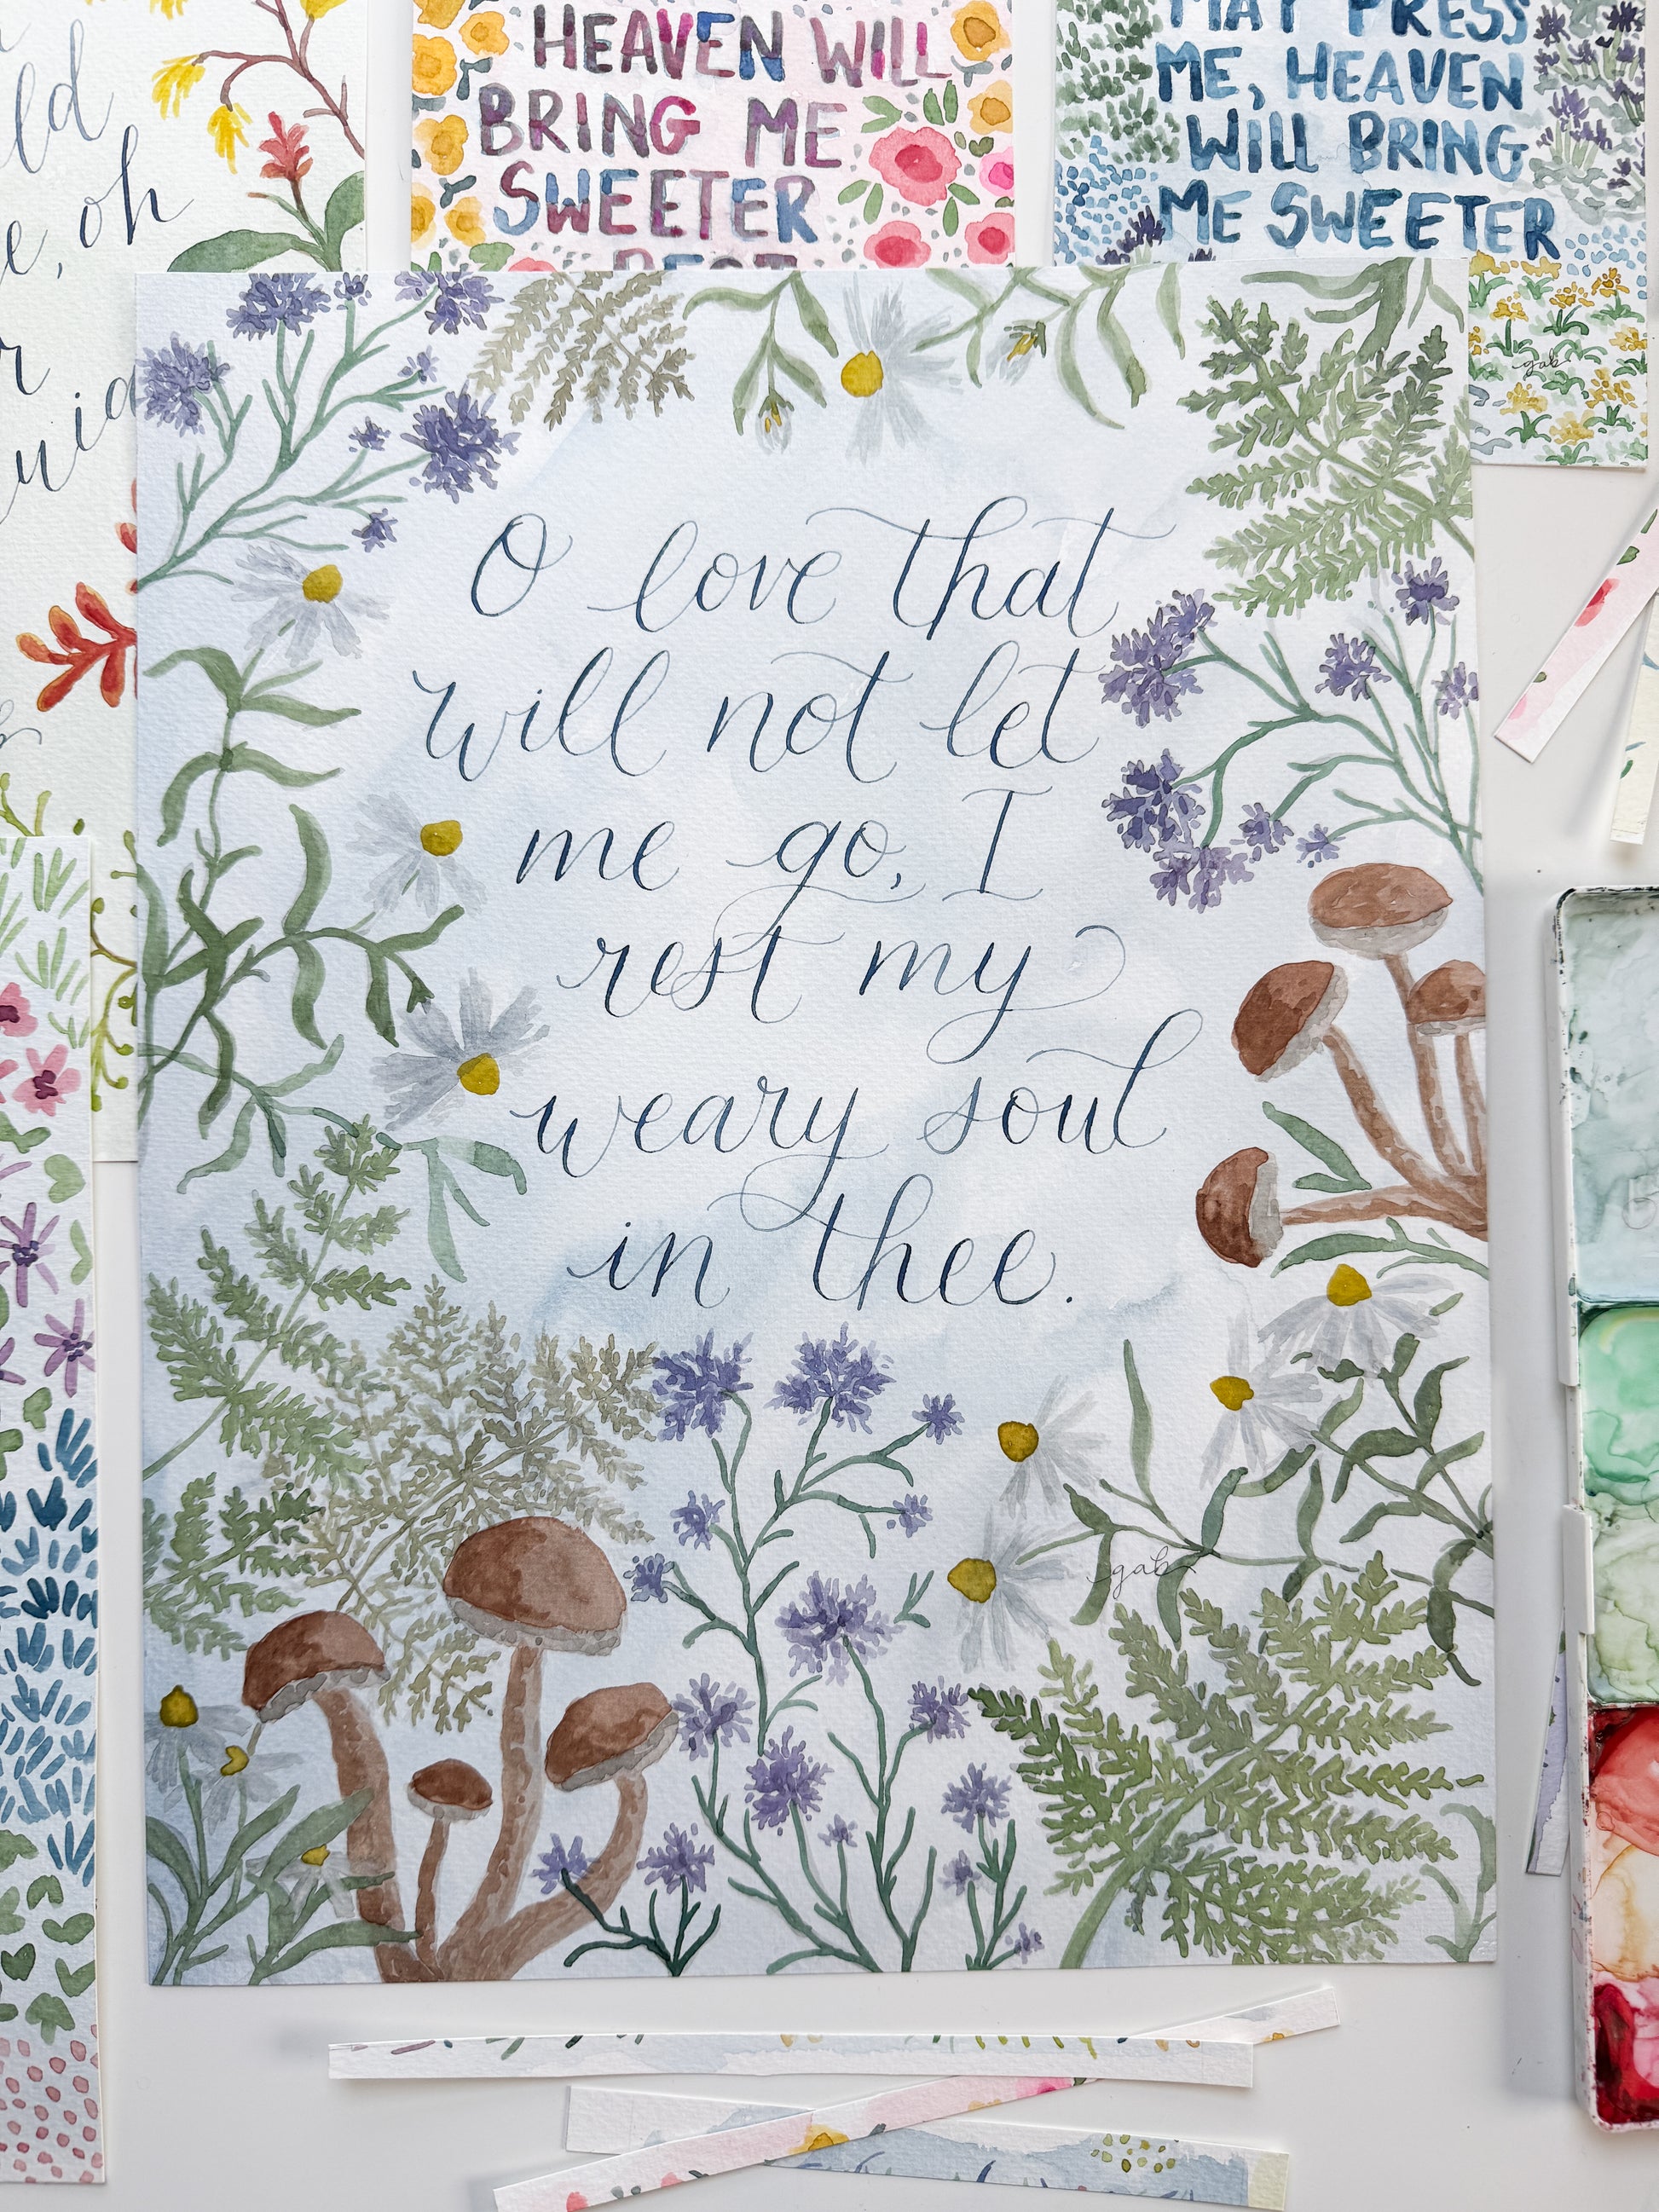 HEAVEN WILL
BRING ME
SWEETER
REST
MAY PRESS
ME, HEAVEN
WILL BRING
ME SWEETER
gab
oh
O love that
will not let
me go, I
rest my
weary soul
in thee.
gab